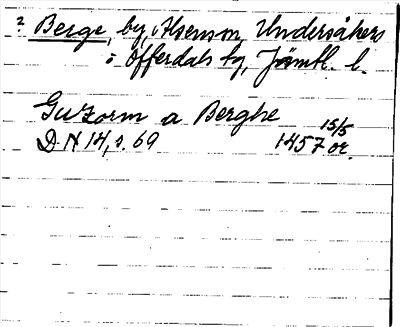 ? Berge, by, Alsensn, Undersåkers
o Offerdals tg, Jämtl. l.
Guzorm a Berghe
15/5
D N 14, s. 69 1457 or.